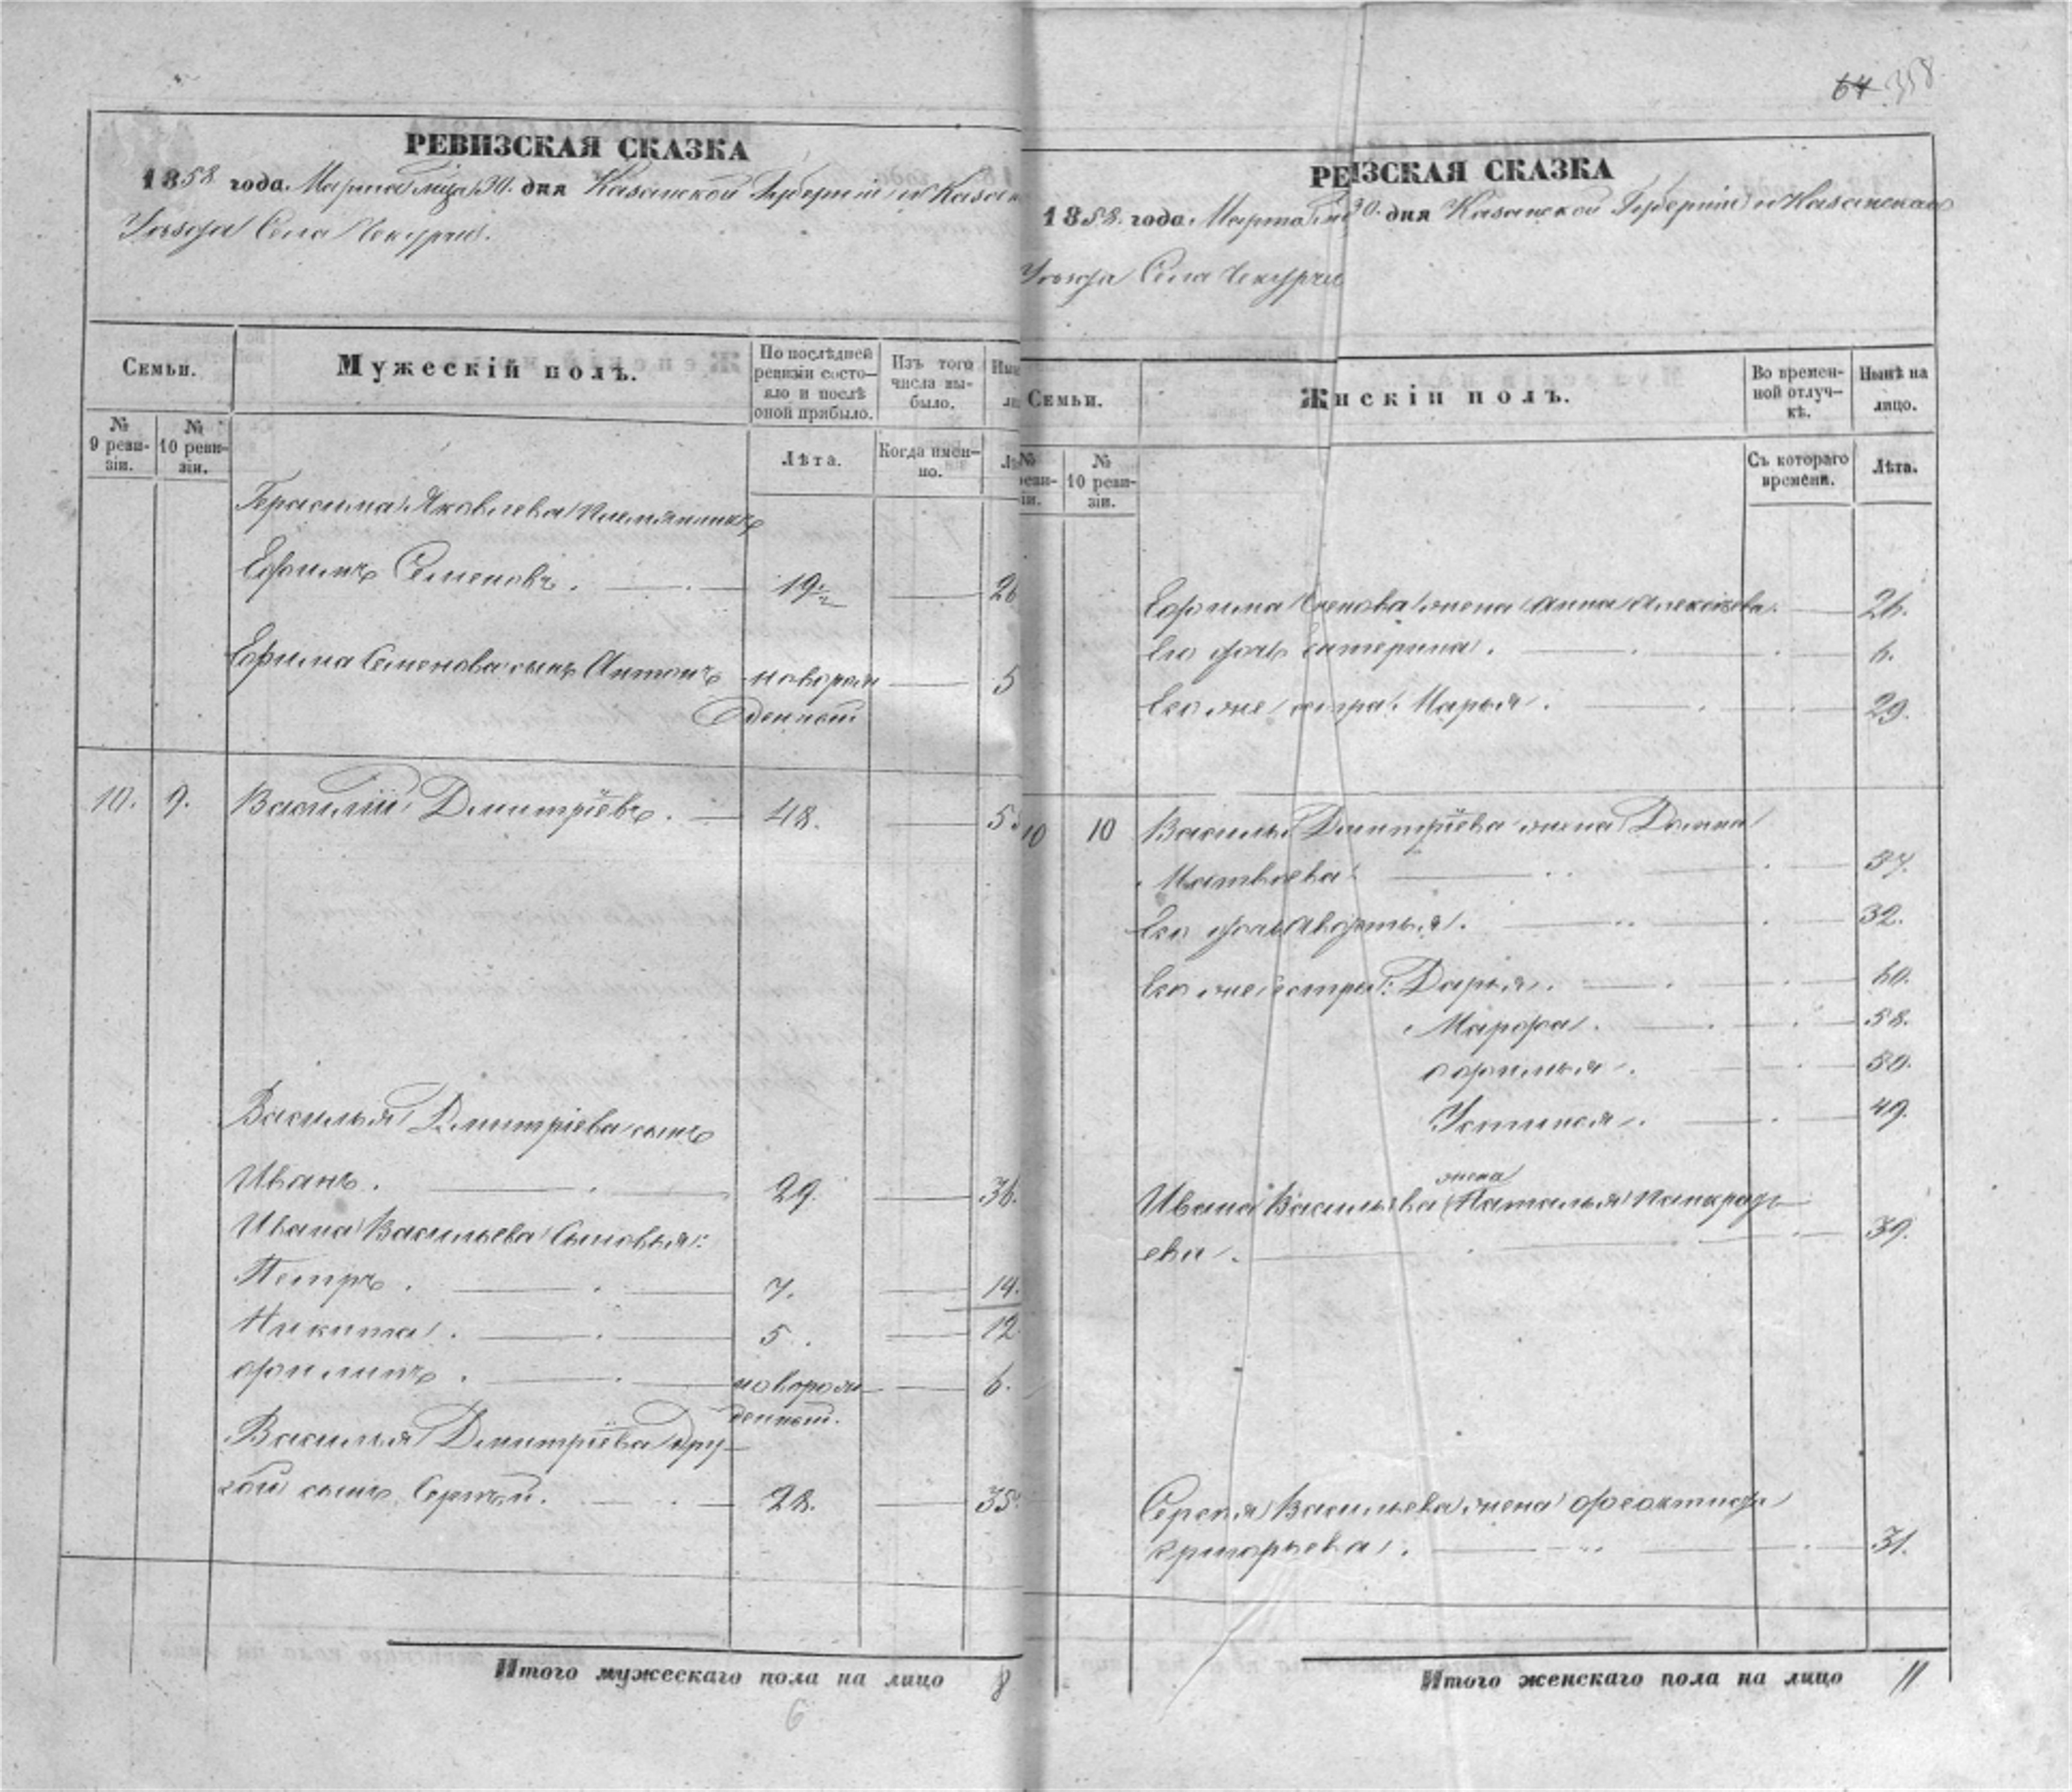 64 358
РЕВИЗСКАЯ СКАЗКА
1858 года. Марта м͠ца 30. дня Казанской Губерніи и Казан
Уѣзда Села Чекурчи.
Семьи.
Мужескій полъ.
По послѣдней ревизіи состо-
яло и послѣ
оной прибыло.
Изъ того
числа вы-
было.
№
9 реви-
зіи.
№
10 реви-
зіи.
Лѣта.
Когда имен-
но.
Герасима Яковлева племянникъ
Ефимъ Семеновъ. 19½ 26
Ефима Семенова сынъ Антонъ новорож
денной 5
10. 9. Василій Дмитріевъ. 48.
Василья Дмитріева сынъ
Иванъ. 29. 36.
Ивана Васильева сыновья:
Петръ. 7. 14.
Никита. 5. 12
Филипъ. новорож
денной. 6.
Василья Дмитріева дру-
гой сынъ Сергѣй. 28. 35.
Итого мужескаго пола на лицо 8
6
РЕИЗСКАЯ СКАЗКА
1858. года. Марта 30. дня Казанской Губерніи и Казанскаго
Уѣзда Села Чекурчи
Семьи.
Жнскіи полъ.
Во времен-
ной отлуч-
кѣ.
Нынѣ на
лицо.
№
10 реви-
зіи.
Съ котораго
времени.
Лѣта.
Ефима Семенова жена Анна Алексѣева. 26.
Его дочь Катерина. 6.
Его же сестра: Марья. 29.
10 10 Василья Дмитріева жена Домна
Матвѣева. 57.
Его дочь Авдотья. 32.
Его же сестры: Дарья. 60.
Марфа. 58.
Софья. 50.
Устинья. 49.
жена
Ивана Васильева Наталья Панкрать
ева. 39.
Сергѣя Васильева жена Феоктиста
Григорьева. 31.
Итого женскаго пола на лицо 11